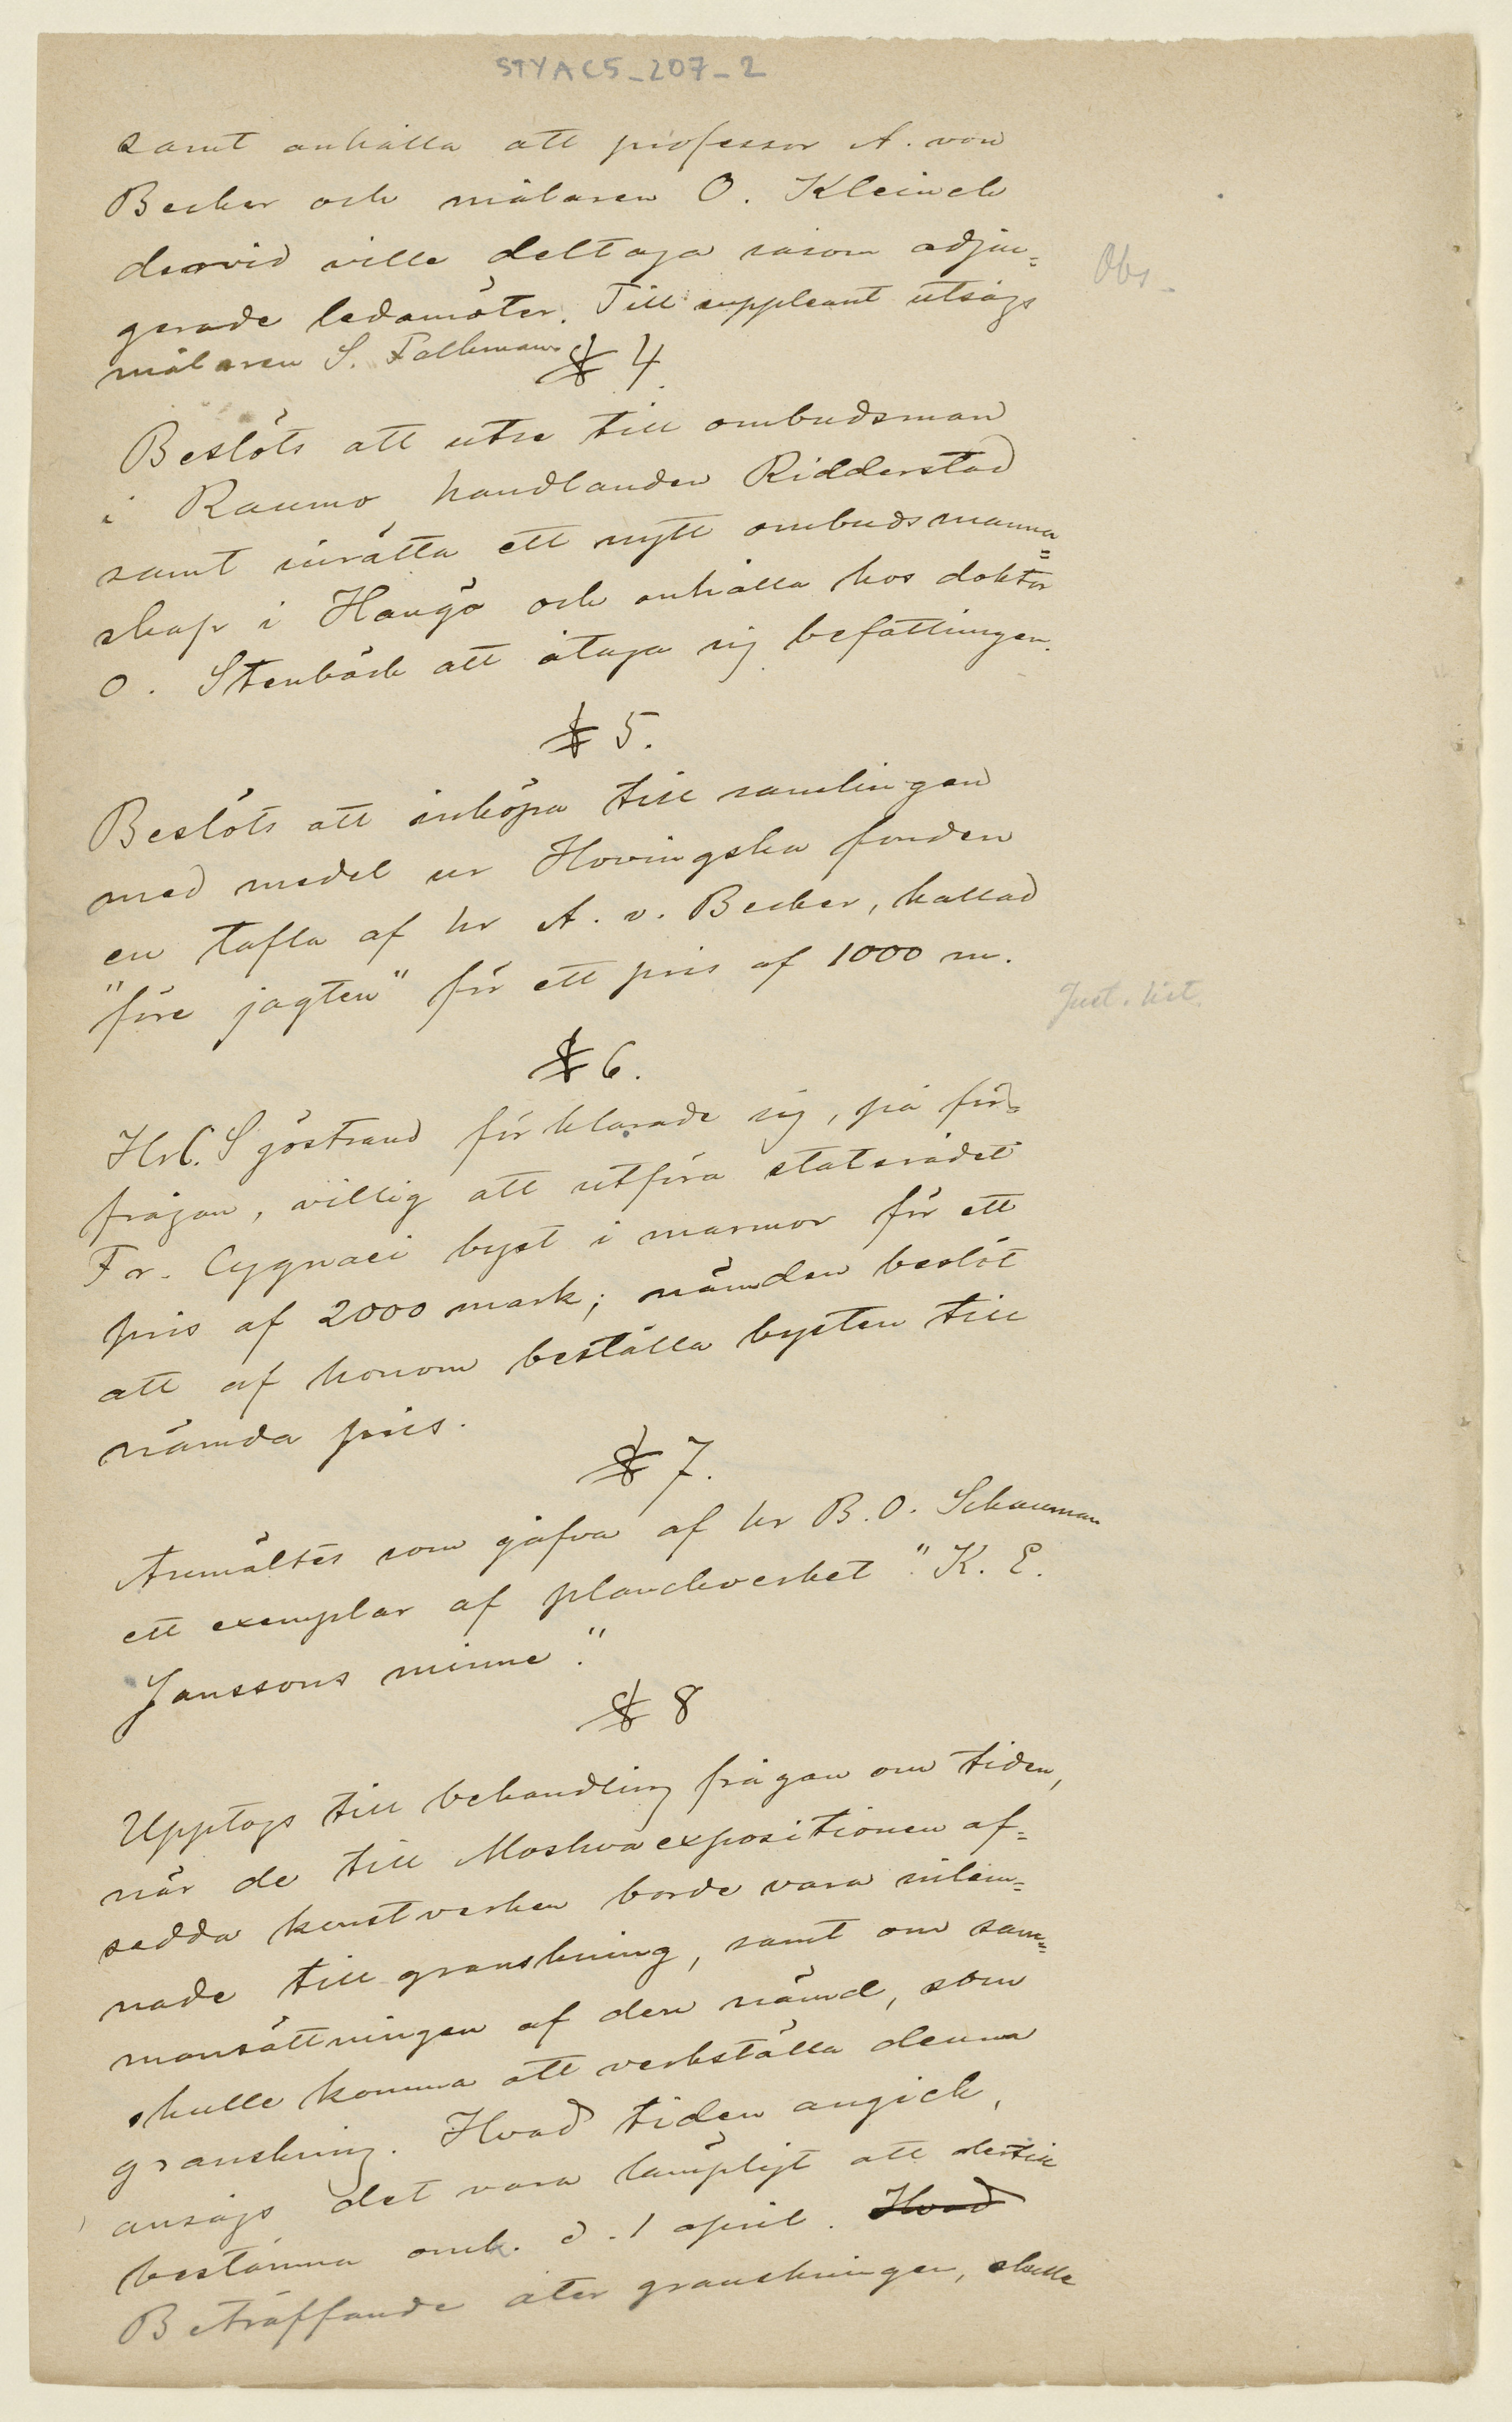 STYAC5_207_2
samt anhålla att professor A. von
Becker och målaren O. Kleineh
dervid ville deltaga såsom adjun=
Obs.
gerade ledamöter. Till suppleant utsågs
målaren S. Falkman.
§ 4.
Beslöts att utse till ombudsman
i Raumo handlanden Ridderstad
samt inrätta ett nytt ombudsmanna=
skap i Hangö och anhålla hos doktor
O. Stenbäck att åtaga sig befattningen.
§ 5.
Beslöts att inköpa till samlingen
med medel ur Hovingska fonden
en tafla af hr A. v. Becker, kallad
"före jagten" för ett pris af 1000 m.
Just. list.
§ 6.
Hr C. Sjöstrand förklarade sig, på för=
frågan, villig att utföra statsrådet
Fr. Cygnaei byst i marmor för ett
pris af 2000 mark; nämden beslöt
att af honom beställa bysten till
nämda pris.
§ 7.
Anmältes som gåfva af hr B. O. Schauman
ett exemplar af planchverket "K. E.
Janssons minne."
§ 8
Upptogs till behandling frågan om tiden,
när de till Moskvaexpositionen af=
sedda konstverken borde vara inläm=
nade till granskning, samt om sam=
mansättningen af den nämd, som
skulle komma att verkställa denna
granskning. Hvad tiden angick,
ansågs det vara lämpligt att dertill
bestämma omk. d. 1 april. Hvad
Beträffande åter granskningen, skulle